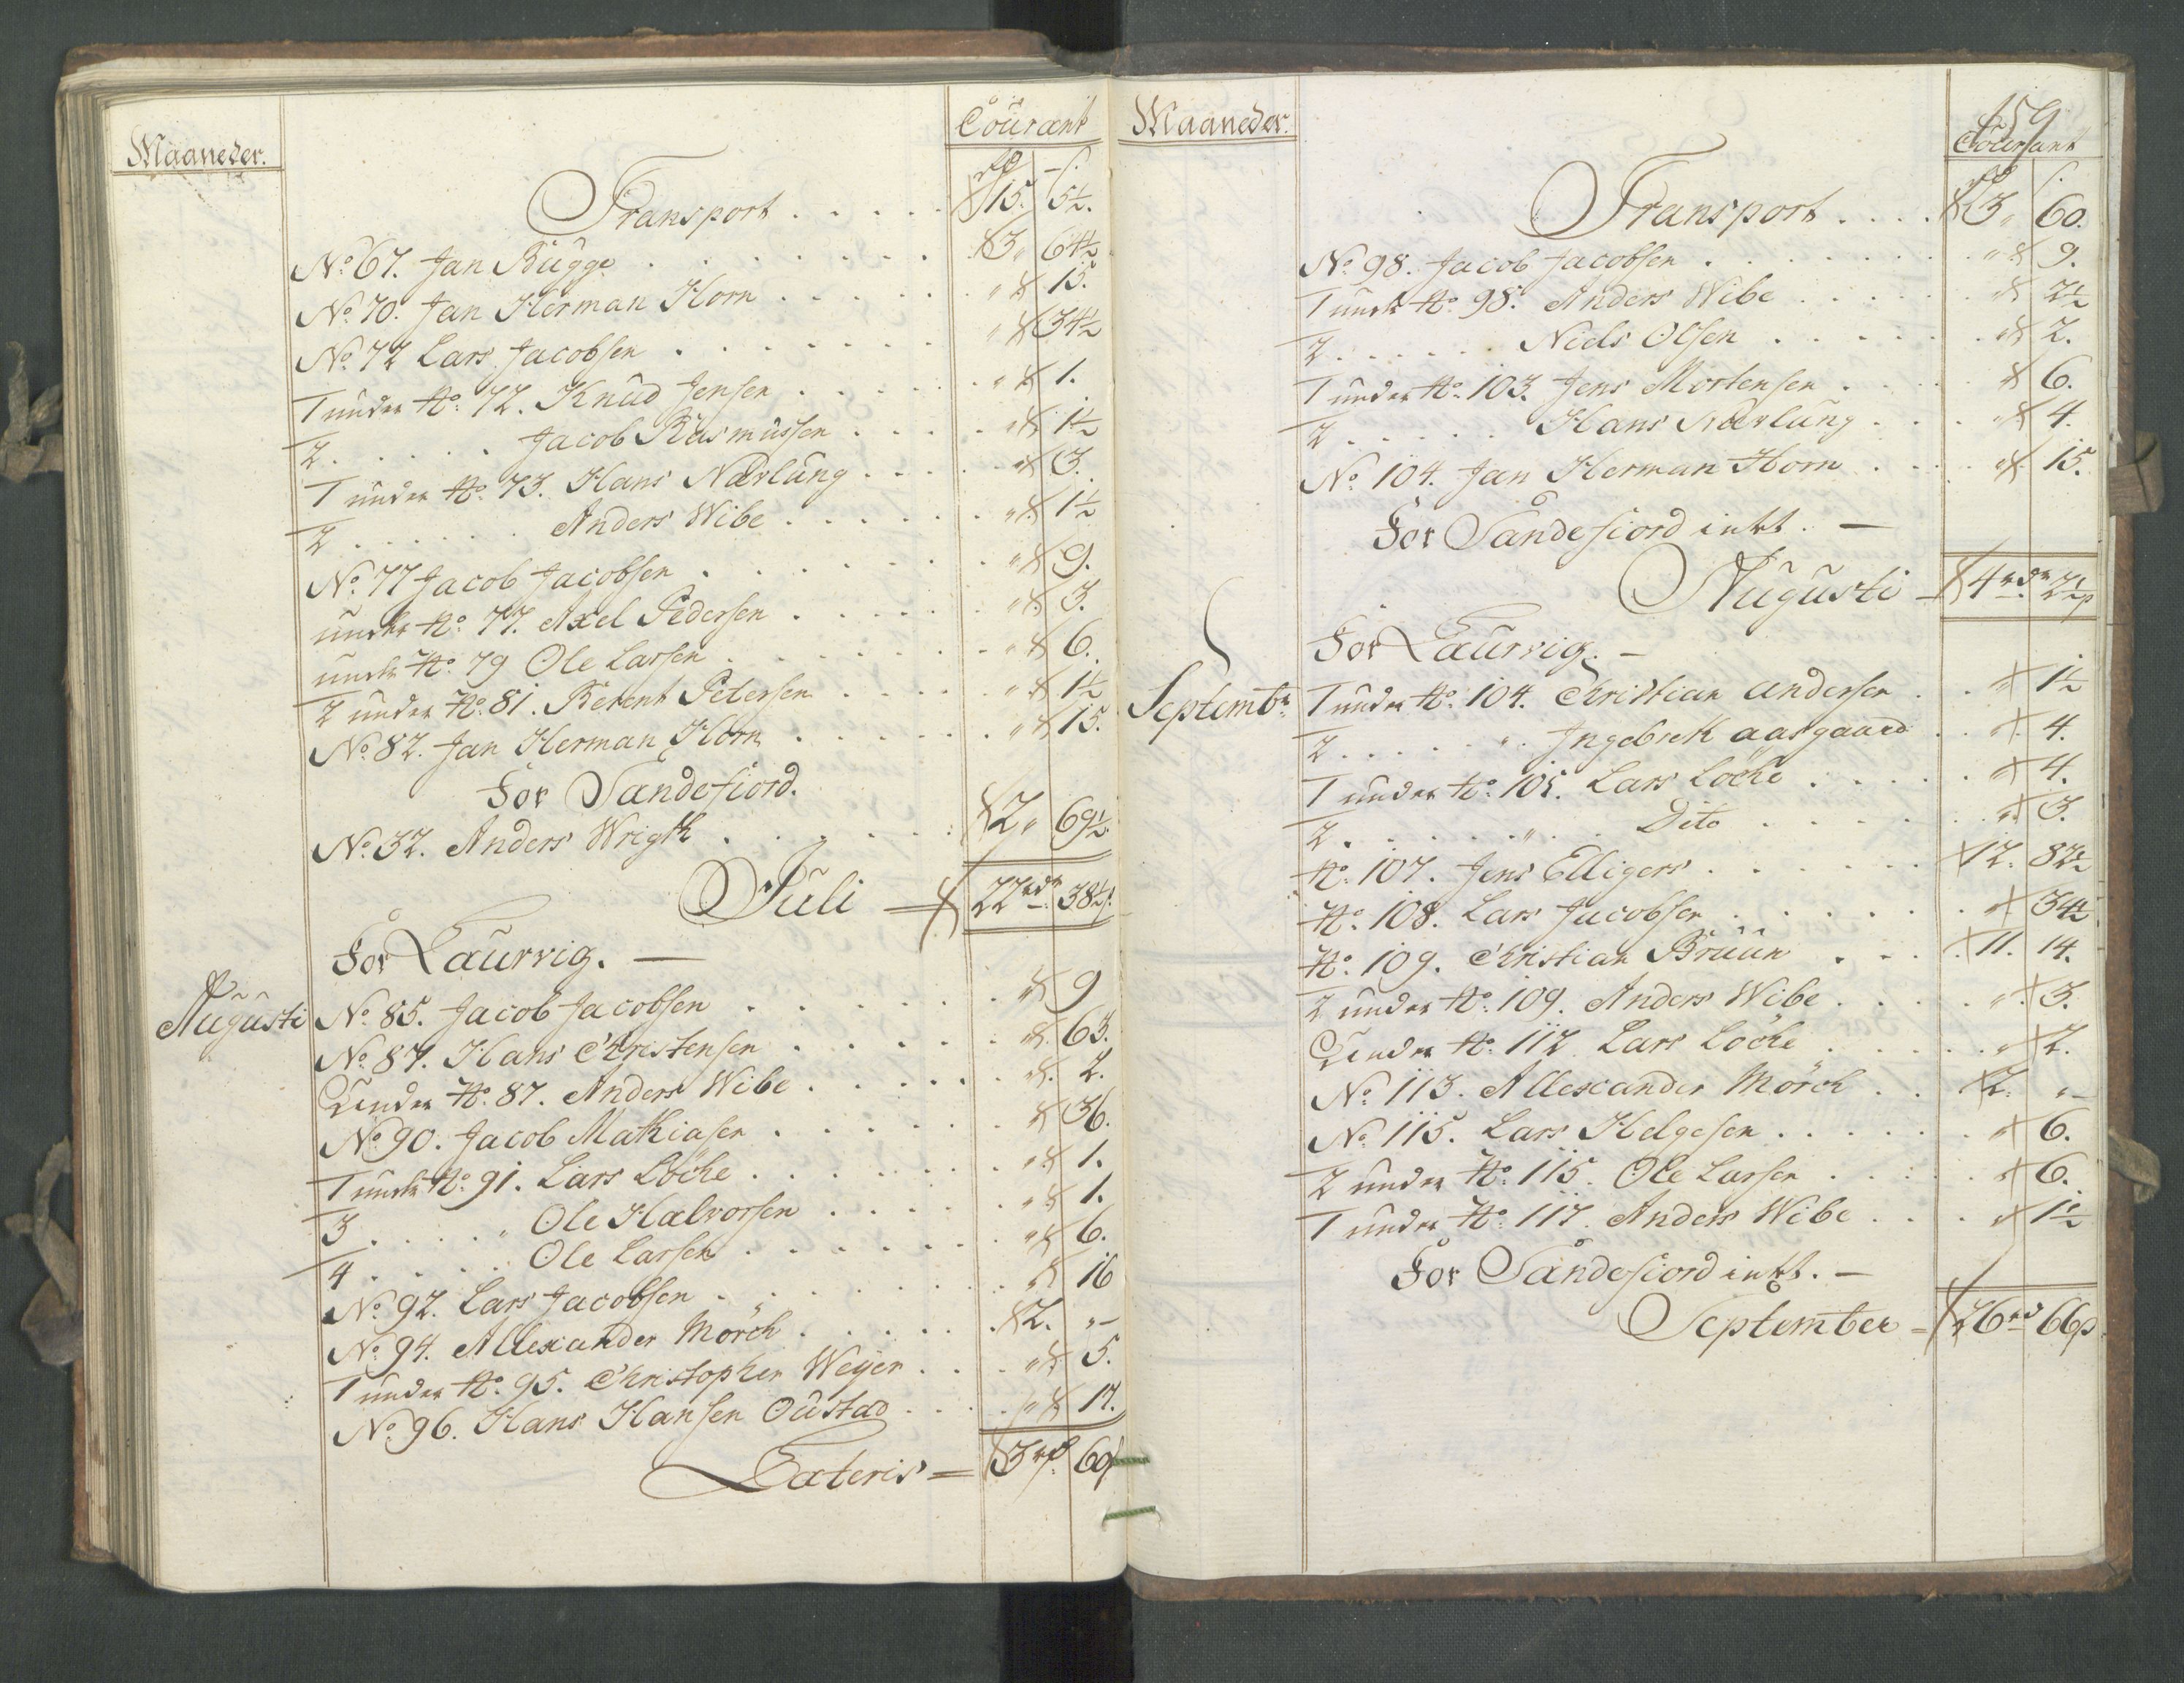 Maaneder.
Courant
rd s.
Transport . . . . . 15. 5½.
No. 67. Jan Bugge . . . . . . . . 3 „ 64½
No. 70. Jan Herman Horn . . . . . . „ 15.
No. 72 Lars Jacobsen . . . . . . . „ 34½
1 under No. 72. Knud Jensen . . . . . . „ 1.
2 . . . . . . Jacob Rasmussen . . . . „ 1½
1 under No. 73. Hans Nærlung . . . . „ 3.
2 . . . . . . Anders Wibe . . . . . . „ 1½
No. 77 Jacob Jacobsen . . . . . . . „ 9.
under No. 77. Axel Pedersen . . . . . „ 3.
under No. 79 Ole Larsen . . . . . . . „ 6.
2 under No. 81. Berent Petersen . . . . „ 1½
No. 82. Jan Herman Horn . . . . . . „ 15.
For Sandefiord.
No. 32. Anders Wrigth . . . . . . 2 „ 69½
Juli = 22 rdr 38½ s.
For Laurvig. —
Augusti
No. 85. Jacob Jacobsen . . . . . . . „ 9
No. 87. Hans Christensen . . . . . . „ 63.
2 under No. 87. Anders Wibe . . . . . . „ 2.
No. 90. Jacob Mathiasen . . . . . . „ 36.
1 under No. 91. Lars Löche . . . . . . . „ 1.
3 . . . . „ Ole Halvorsen . . . . . „ 1.
4 . . . . . Ole Larsen . . . . . . „ 6.
No. 92. Lars Jacobsen . . . . . . . „ 16
No. 94. Allexander Mörch . . . . . . 2. „ –
1 under No. 95. Christopher Weyer . . . „ 5.
No. 96. Hans Hansen Oustad . . . . „ 17.
Lateris = 3 rd 60 s
Maaneder.
159
Courant
Transport . . . . 3 „ 60.
No. 98. Jacob Jacobsen . . . . . . . . „ 9.
1 under No. 98. Anders Wibe . . . . . . „ 2½
2 . . . . . . Niels Olsen . . . . . . „ 2.
1 under No. 103. Jens Mortensen . . . . „ 6.
2 . . . . . Hans Nærlung . . . . „ 4.
No. 104. Jan Herman Horn . . . . „ 15.
For Sandefiord intet. —
Augusti = 4 rdr 2½ s
For Laurvig. –
Septembr.
1 under No. 104. Christian Andersen . . . „ 1½
2 . . . . . „ . Ingebreth Aasgaard . . „ 4.
1 under No. 105. Lars Löche . . . . . „ 4.
2 . . . . . „ . . Dito . . . . . . „ 3.
No. 107. Jens Elligers . . . . . . 12. 82½
No. 108. Lars Jacobsen . . . . . . . „ 34½
No. 109. Christian Bruun . . . . 11. 14.
2 under No. 109. Anders Wibe . . . . . „ 3.
2 under No. 112. Lars Löche . . . . . „ 2.
No. 113. Allexander Mörch . . 2. „ –
No. 115. Lars Helgesen . . . . . . „ 6.
2 under No. 115. Ole Larsen . . . . „ 6.
1 under No. 117. Anders Wibe . . . . „ 1½
For Sandefiord intet. —
September = 26 rd 66 s